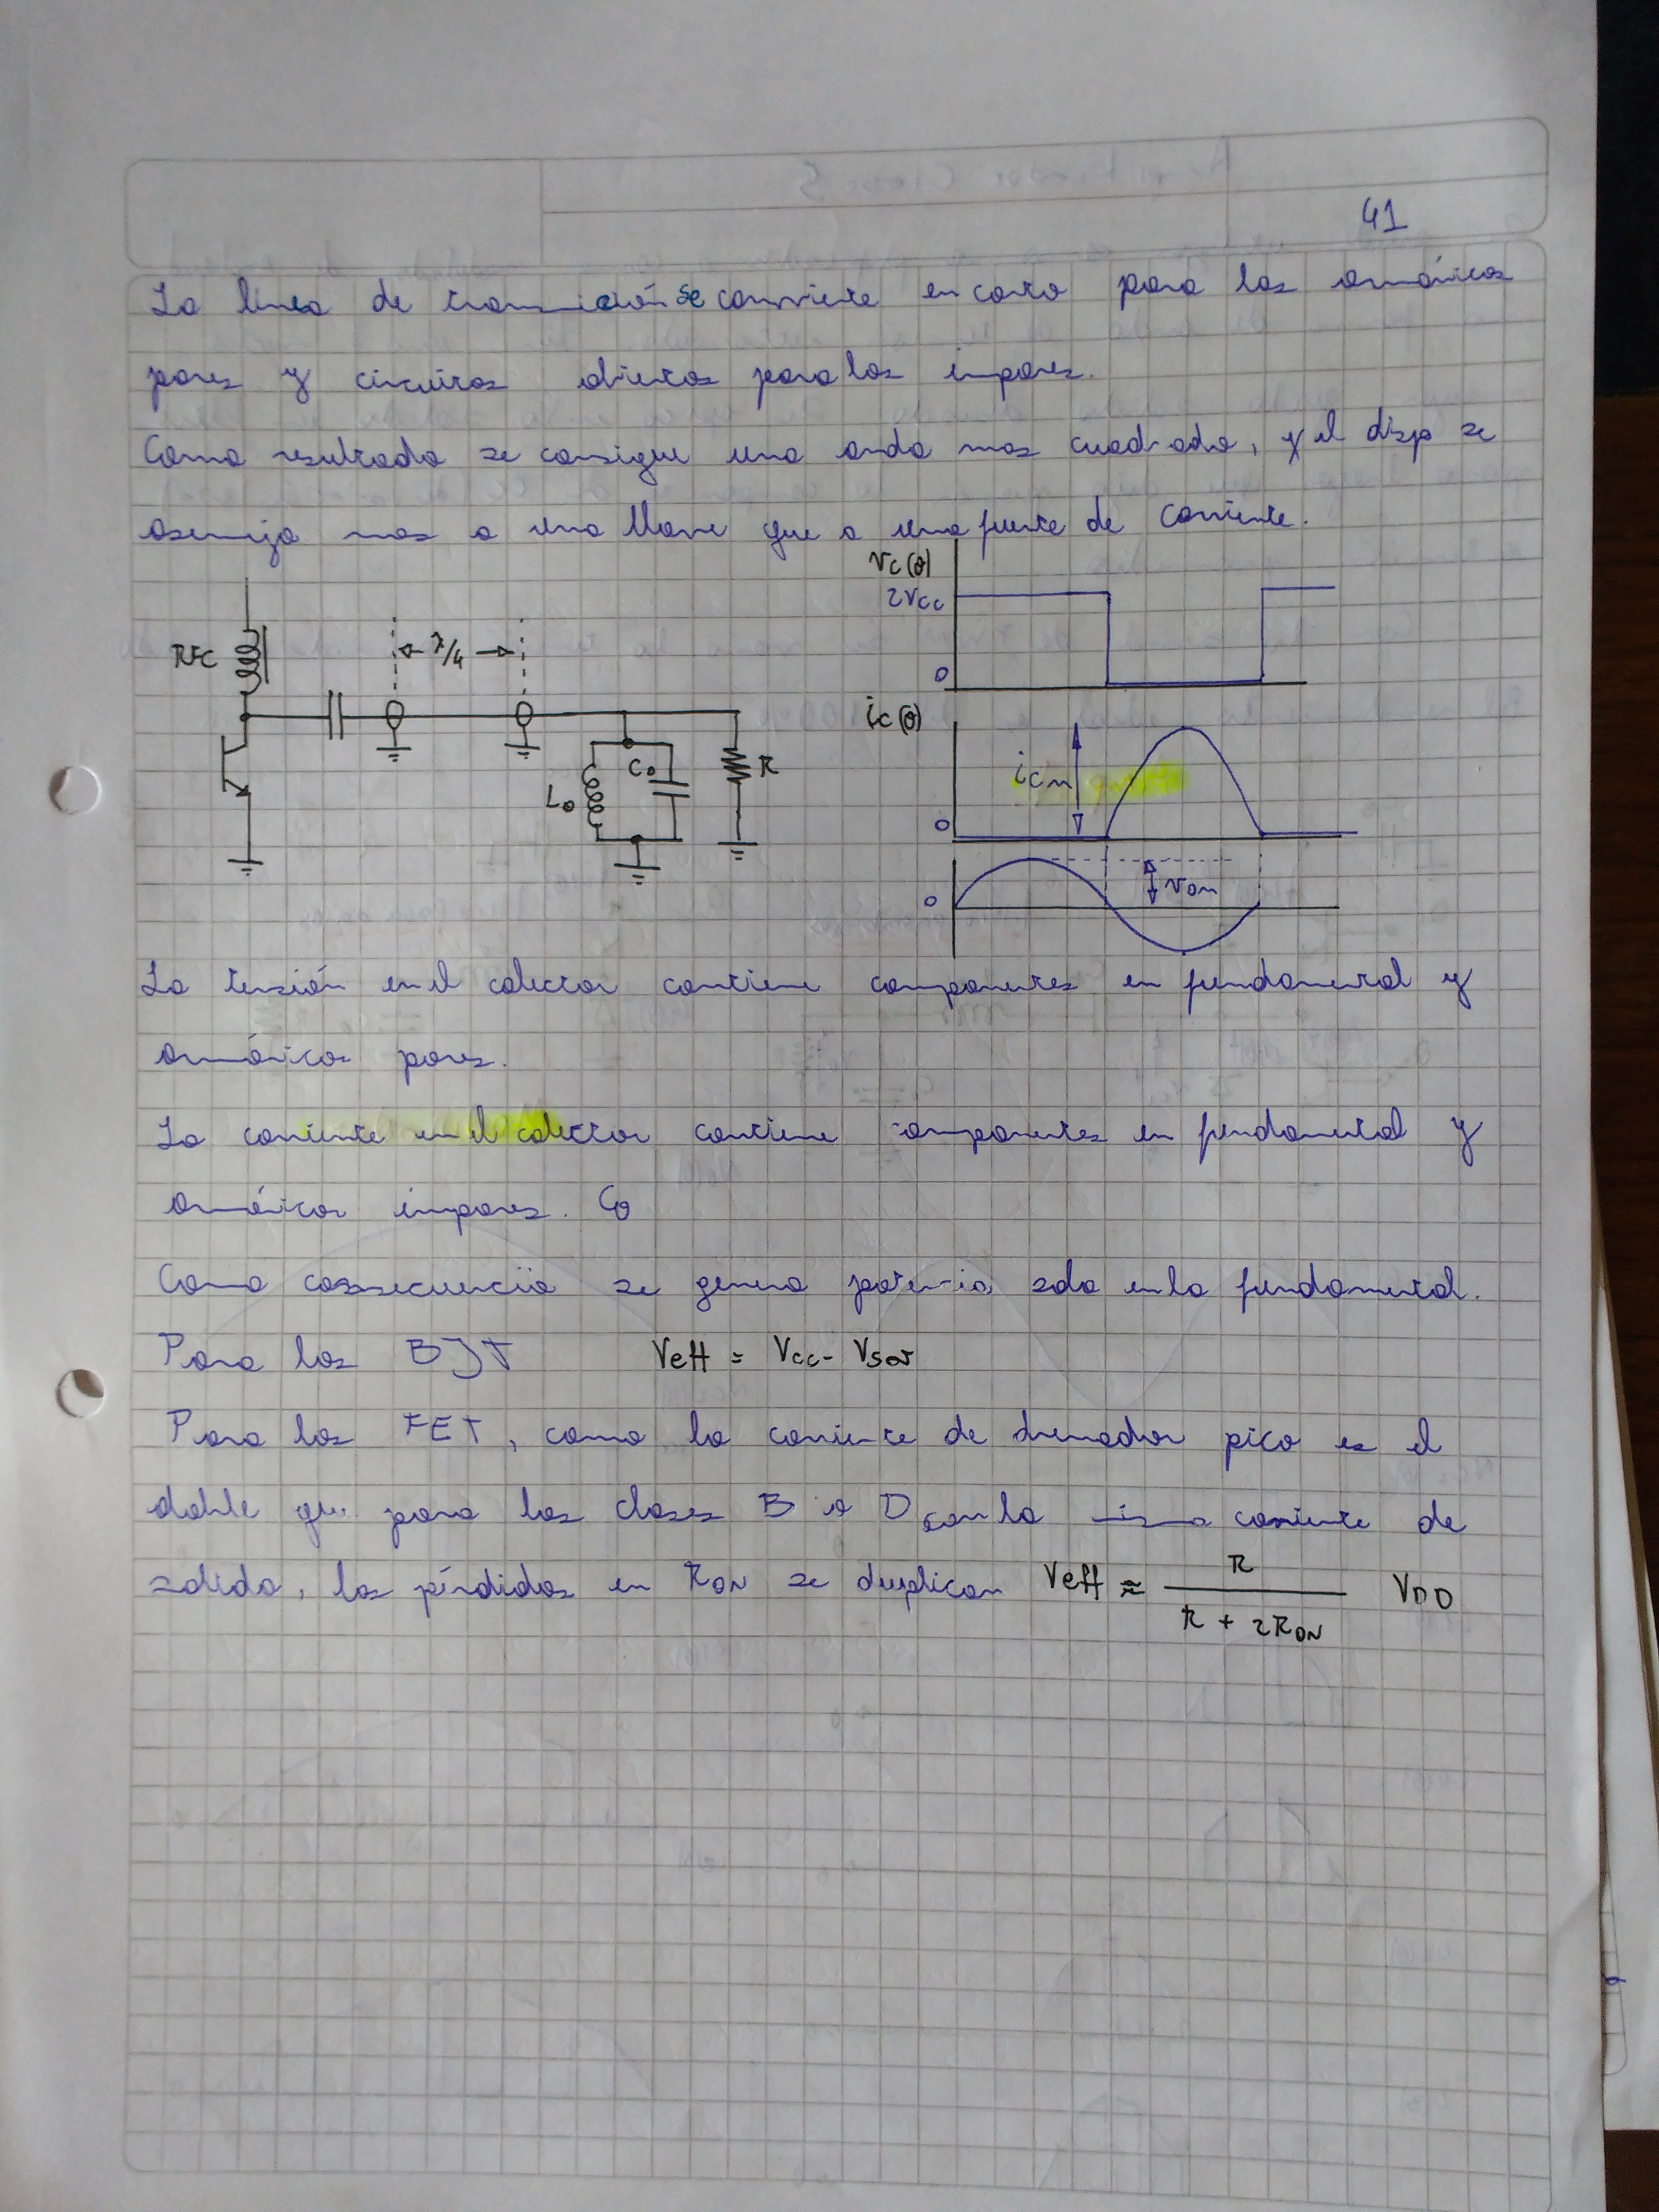 41
La linea de transmición se convierte en corto para las armónicas
pares y circuitos abiertos para las impares.
Como resultado se consigue una onda mas cuadrada, y el disp se
asemeja mas a una llave que a una fuente de corriente.
Vc(θ)
2Vcc
0
RFC
λ/4
ic(θ)
icm
0
Lo
Co
R
0
vom
La tensión en el colector contiene componentes en fundamental y
armónicos pares.
La corriente en el colector contiene componentes en fundamental y
armónicos impares.
Como cosnsecuencia se genera potencia solo en la fundamental.
Para los BJT Veff = Vcc - Vsat
Para los FET, como la corriente de drenador pico es el
doble que para los clases B o D con la misma corriente de
salida, las pérdidas en RON se duplican Veff ≈ R / (R + 2RON) VDD